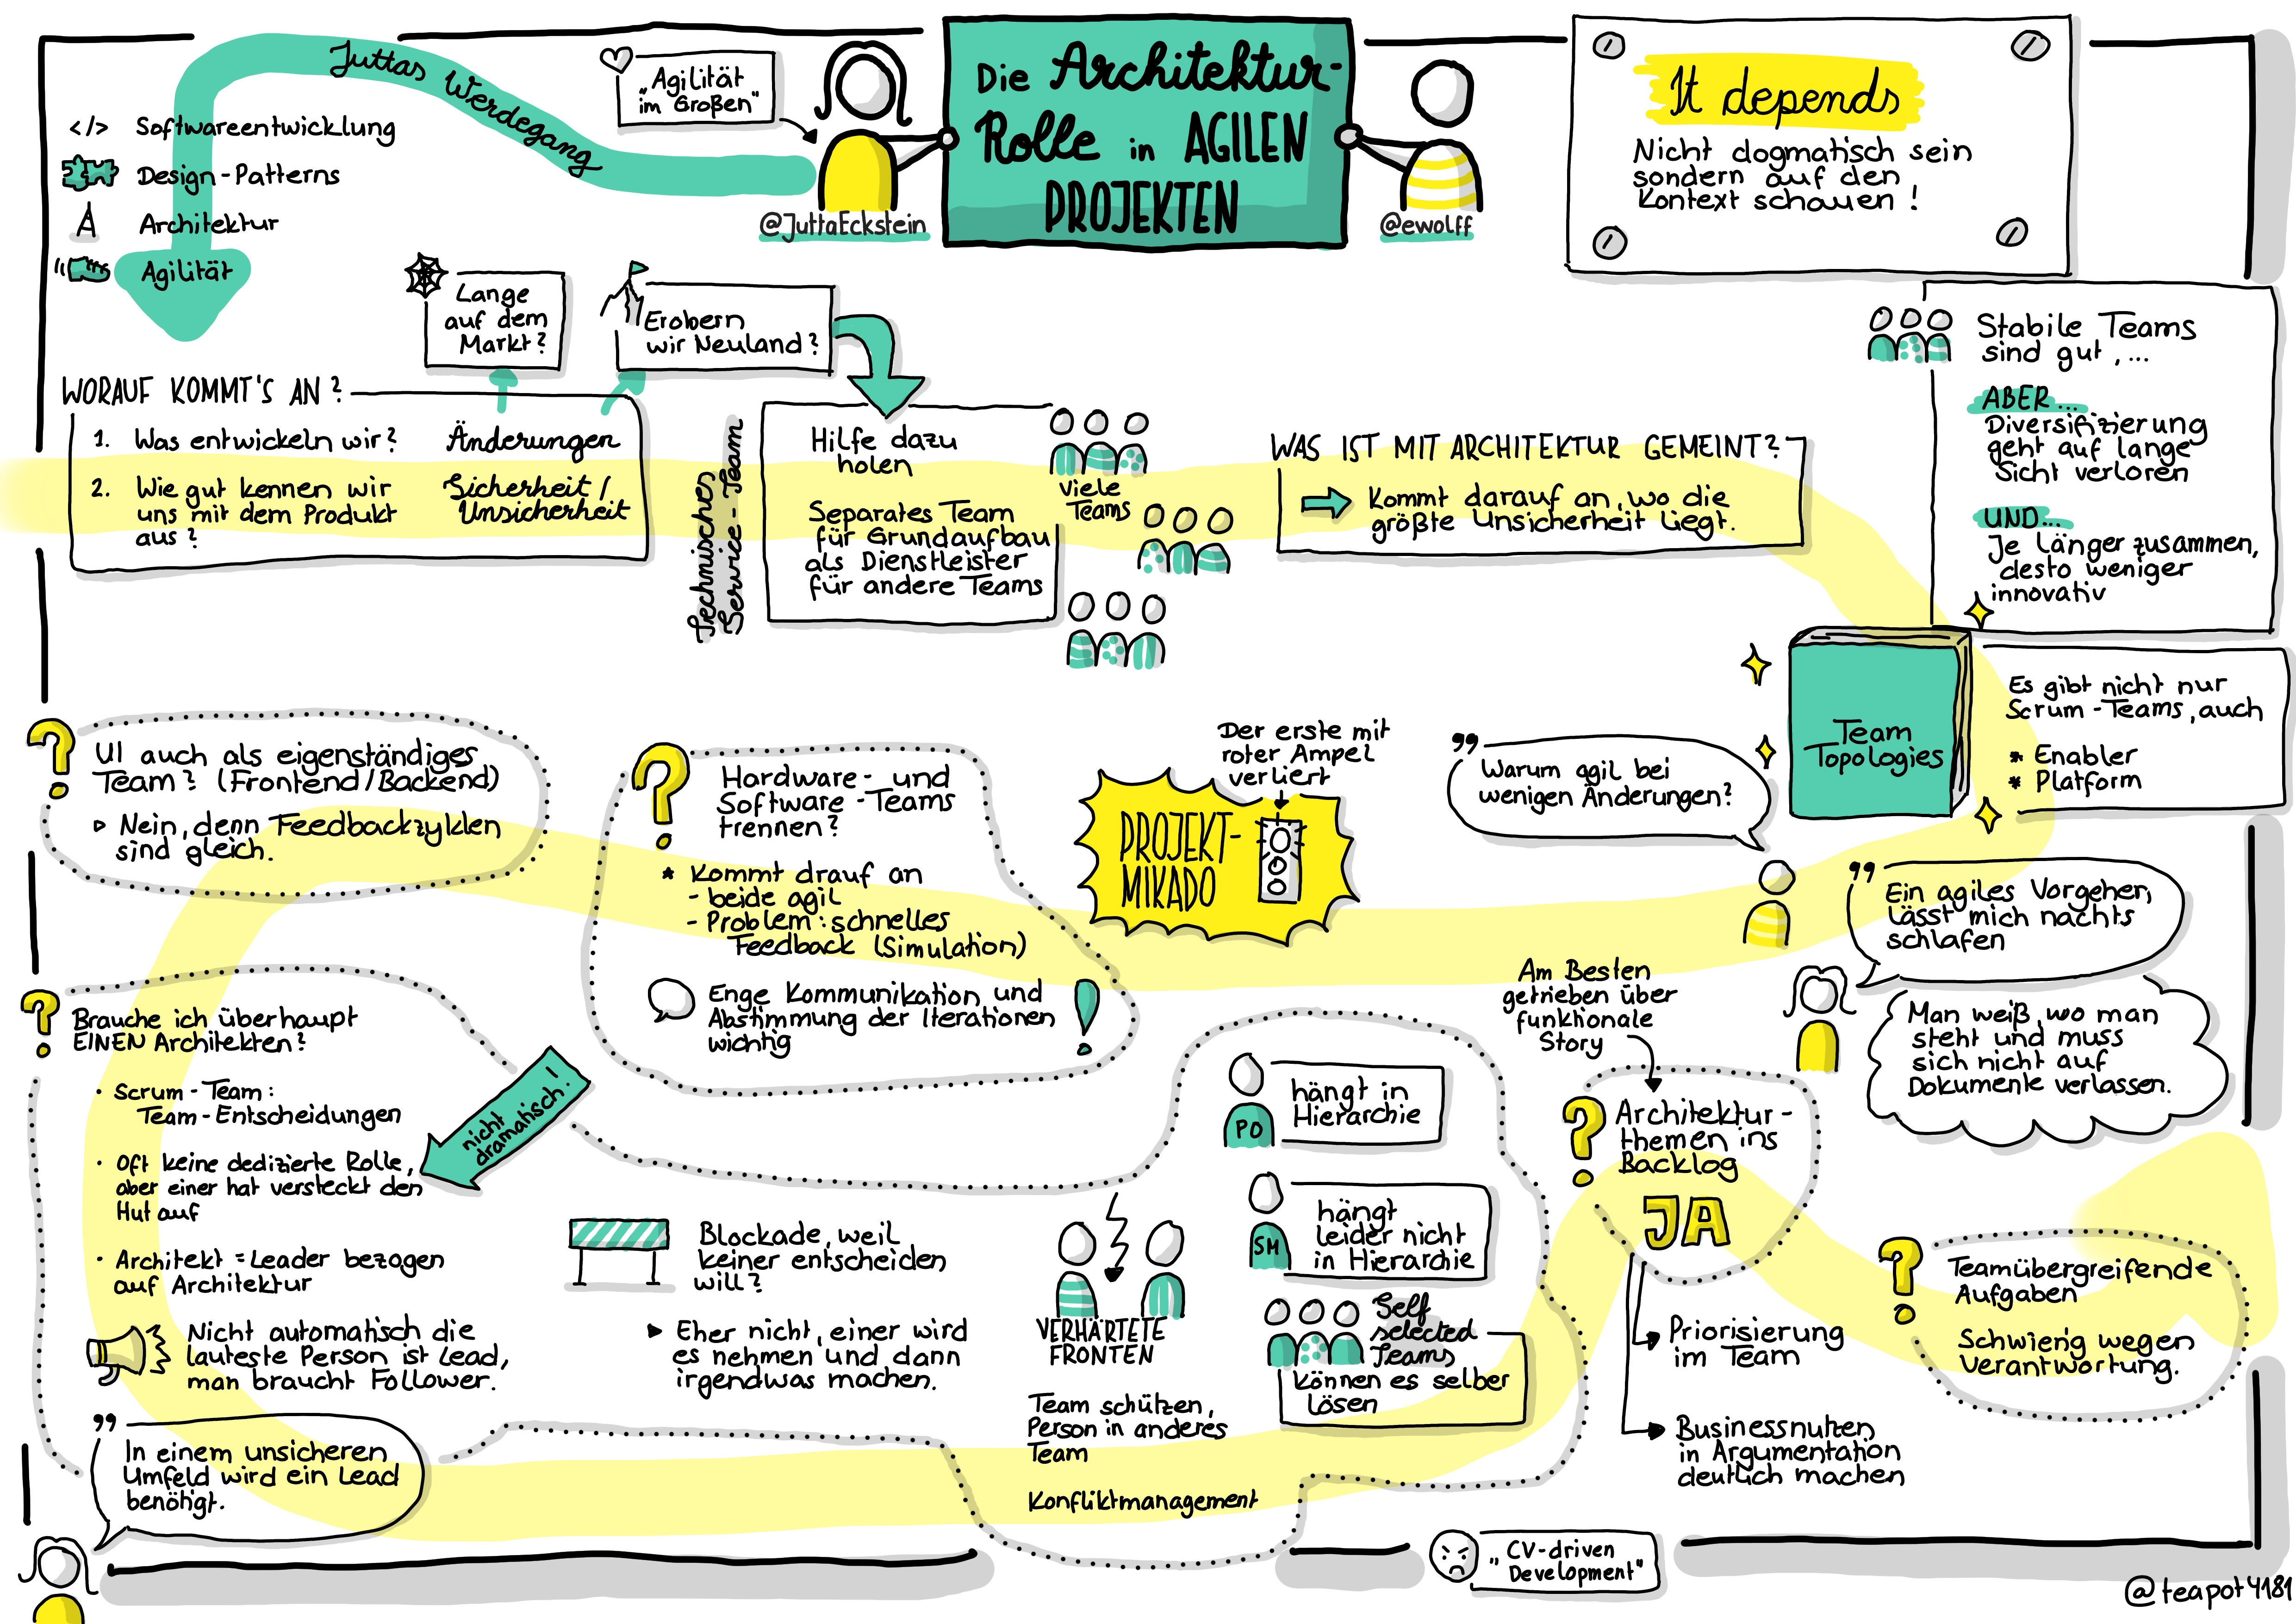 Die Architektur-
Rolle in AGILEN
PROJEKTEN
@JuttaEckstein
@ewolff
„Agilität
im Großen"
Juttas Werdegang
</> Softwareentwicklung
Design-Patterns
Architektur
Agilität
It depends
Nicht dogmatisch sein
sondern auf den
Kontext schauen!
Lange
auf dem
Markt?
Erobern
wir Neuland?
WORAUF KOMMT'S AN?
1. Was entwickeln wir?
Änderungen
2. Wie gut kennen wir
uns mit dem Produkt
aus?
Sicherheit/
Unsicherheit
Technisches
Service-Team
Hilfe dazu
holen
Separates Team
für Grundaufbau
als Dienstleister
für andere Teams
Viele
Teams
WAS IST MIT ARCHITEKTUR GEMEINT?
Kommt darauf an, wo die
größte Unsicherheit liegt.
Stabile Teams
sind gut, ...
ABER...
Diversifizierung
geht auf lange
Sicht verloren
UND...
Je länger zusammen,
desto weniger
innovativ
Team
Topologies
Es gibt nicht nur
Scrum-Teams, auch
* Enabler
* Platform
? UI auch als eigenständiges
Team? (Frontend/Backend)
Nein, denn Feedbackzyklen
sind gleich.
? Hardware- und
Software-Teams
trennen?
* Kommt drauf an
- beide agil
- Problem: schnelles
Feedback (Simulation)
Enge Kommunikation und
Abstimmung der Iterationen
wichtig !
Der erste mit
roter Ampel
verliert
PROJEKT-
MIKADO
" Warum agil bei
wenigen Änderungen?
" Ein agiles Vorgehen,
lässt mich nachts
schlafen
Man weiß, wo man
steht und muss
sich nicht auf
Dokumente verlassen.
? Brauche ich überhaupt
EINEN Architekten?
· Scrum-Team:
Team-Entscheidungen
· Oft keine dedizierte Rolle,
aber einer hat versteckt den
Hut auf
nicht
dramatisch!
· Architekt = Leader bezogen
auf Architektur
Nicht automatisch die
lauteste Person ist Lead,
man braucht Follower.
" In einem unsicheren
Umfeld wird ein Lead
benötigt.
Blockade, weil
keiner entscheiden
will?
Eher nicht, einer wird
es nehmen und dann
irgendwas machen.
VERHÄRTETE
FRONTEN
Team schützen,
Person in anderes
Team
Konfliktmanagement
PO
hängt in
Hierarchie
SM
hängt
leider nicht
in Hierarchie
Self
selected
Teams
können es selber
lösen
Am Besten
getrieben über
funktionale
Story
? Architektur-
themen ins
Backlog
JA
Priorisierung
im Team
Businessnutzen
in Argumentation
deutlich machen
? Teamübergreifende
Aufgaben
Schwierig wegen
Verantwortung.
„CV-driven
Development"
@teapot4181